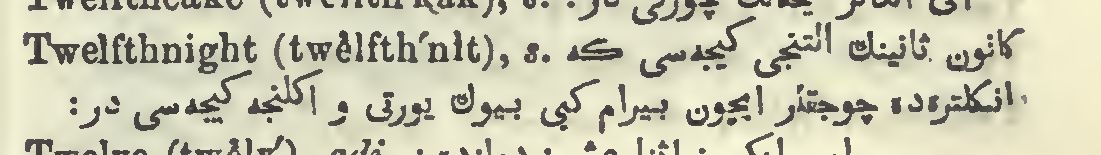 Twelfthnight (twĕlfth′nīt), s. كانون ثانینك التنجی كیجه‌سی كه
انكلتره‌ده چوجقلر ایچون بیرام كبی بیوك یورتی و اكلنجه كیجه‌سی در :